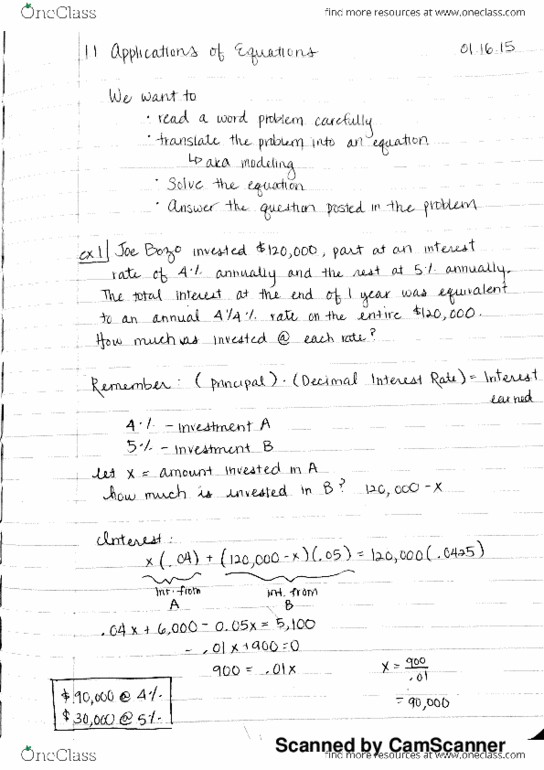 OneClass
find more resources at www.oneclass.com
11 Applications of Equations
01.16.15
We want to
· read a word problem carefully
· translate the problem into an equation
↳ aka modeling
· Solve the equation
· Answer the question posted in the problem
ex 1 Joe Bozo invested $120,000, part at an interest
rate of 4% annually and the rest at 5% annually.
The total interest at the end of 1 year was equivalent
to an annual 4 1/4 % rate on the entire $120,000.
How much was invested @ each rate?
Remember: (principal) · (Decimal Interest Rate) = Interest
earned
4% - Investment A
5% - Investment B
let x = amount invested in A
how much is invested in B? 120,000 - x
Interest:
x(.04) + (120,000 - x)(.05) = 120,000(.0425)
Int. from
A
Int. from
B
.04x + 6,000 - 0.05x = 5,100
- .01x + 900 = 0
900 = .01x
x = 900
.01
= 90,000
$90,000 @ 4%
$30,000 @ 5%
Scanned by CamScanner
OneClass
find more resources at www.oneclass.com